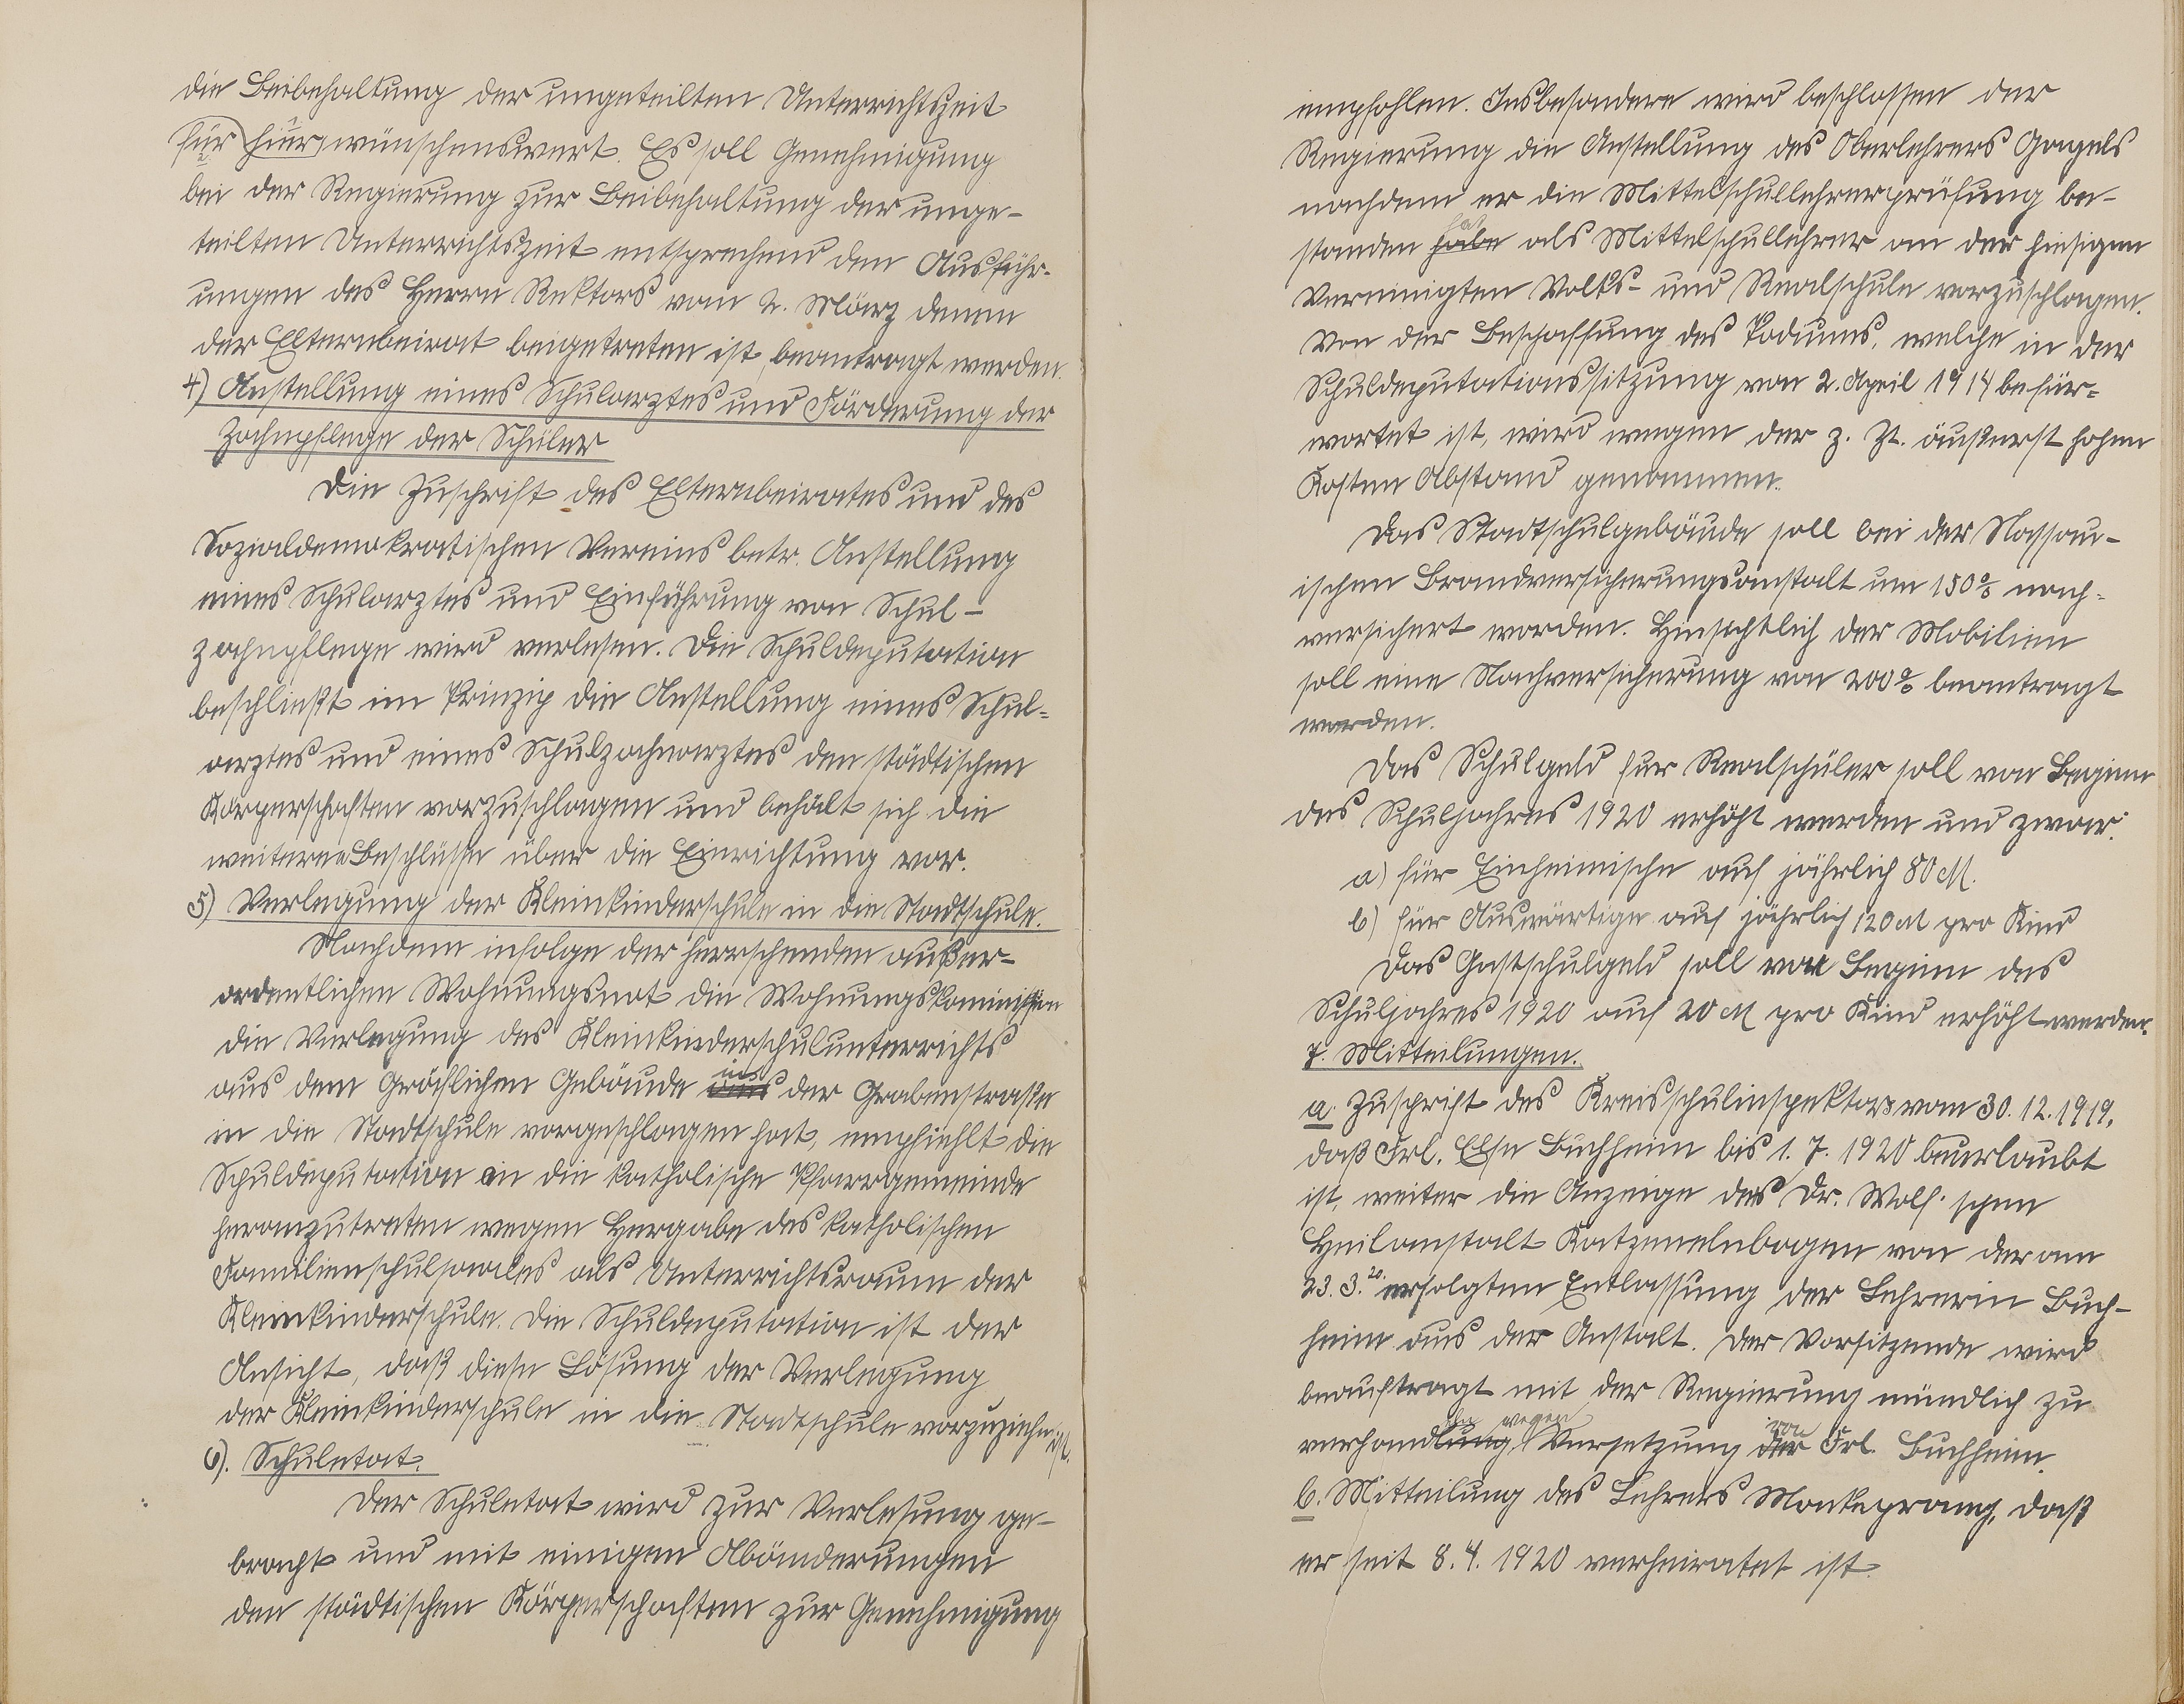 die Beibehaltung der ungeteilten Unterrichtszeit
für hier wünschenswert. Es soll Genehmigung
bei der Regierung zur Beibehaltung der unge-
teilten Unterrichtszeit entsprechend den Ausführ-
ungen des Herrn Rektors vom 2. März denen
der Elternbeirat beigetreten ist, beantragt werden.
4) Anstellung eines Schularztes und Förderung der
Zahnpflege der Schüler
Die Zuschrift des Elternbeirates und des
Sozialdemokratischen Vereins betr. Anstellung
eines Schularztes und Einführung von Schul-
zahnpflege wird verlesen. Die Schuldeputation
beschließt im Prinzip die Anstellung eines Schul-
arztes und eines Schulzahnarztes den städtischen
Körperschaften vorzuschlagen und behält sich die
weitere Beschlüsse über die Einrichtung vor.
5) Verlegung der Kleinkinderschule in die Stadtschule.
Nachdem infolge der herrschenden außer-
ordentlichen Wohnungsnot die Wohnungskommission
die Verlegung des Kleinkinderschulunterrichts
aus dem Gröchlichen Gebäude in der Grabenstraße
in die Stadtschule vorgeschlagen hat, empfiehlt die
Schuldeputation an die katholische Pfarrgemeinde
heranzutreten wegen Hergabe des katholischen
Familienschulsaales als Unterrichtsraum der
Kleinkinderschule. Die Schuldeputation ist der
Ansicht, daß diese Lösung der Verlegung
der Kleinkinderschule in die Stadtschule vorzuziehen ist.
6). Schuletat.
Der Schuletat wird zur Verlesung ge-
bracht und mit einigen Abänderungen
den städtischen Körperschaften zur Genehmigung
empfohlen. Insbesondere wird beschlossen der
Regierung die Anstellung des Oberlehrers Gagels
nachdem er die Mittelschullehrerprüfung be-
standen habe hat als Mittelschullehrer an der hiesigen
Vereinigten Volks- und Realschule vorzuschlagen.
Von der Beschaffung des Podiums, welche in der
Schuldeputationssitzung von 2. April 1914 befür-
wortet ist, wird wegen der z. Zt. äußerst hohen
Kosten Abstand genommen.
Das Stadtschulgebäude soll bei der Nassau-
ischen Brandversicherungsanstalt um 150% nach-
versichert werden. Hinsichtlich der Mobilien
soll eine Nachversicherung von 200% beantragt
werden.
Das Schulgeld fur Realschüler soll von Beginn
des Schuljahres 1920 erhöht werden und zwar:
a) für Einheimische auf jährlich 80 M.
b) für Auswärtige auf jährlich 120 M pro Kind
Das Gastschulgeld soll von Beginn des
Schuljahres 1920 auf 20 M pro Kind erhöht werden.
7. Mitteilungen.
a. Zuschrift des Kreisschulinspektors vom 30. 12. 1919,
daß Frl. Else Buchheim bis 1. 7. 1920 beurlaubt
ist, weiter die Anzeige der Dr. Wolf'schen
Heilanstalt Katzenelnbogen von der am
23. 3. 20. erfolgten Entlassung der Lehrerin Buch-
heim aus der Anstalt. Der Vorsitzende wird
beauftragt mit der Regierung mündlich zu
verhandlung eln wegen Versetzung der von Frl. Buchheim.
b. Mitteilung des Lehrers Monkeprang, daß
er seit 8. 4. 1920 verheiratet ist.